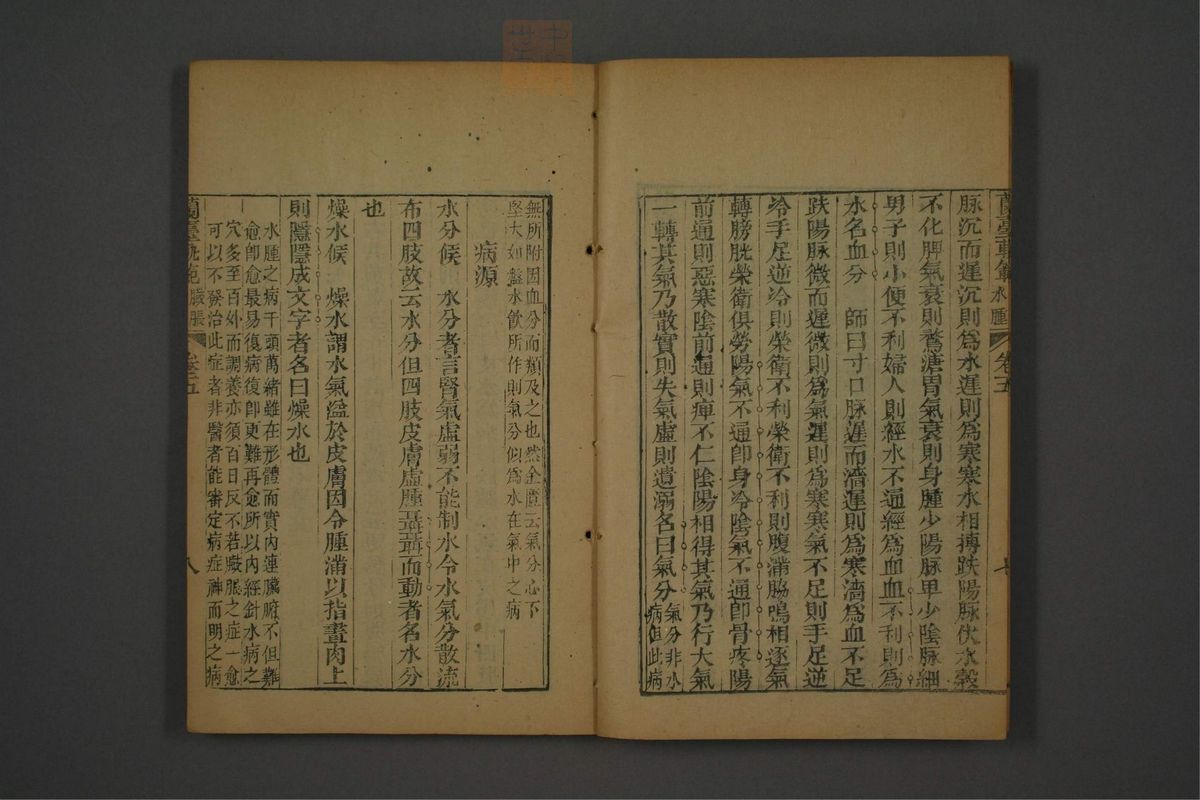 蘭臺軌範 水腫 卷五 七
脉沉而遲沉則爲水遲則爲寒寒水相搏趺陽脉伏水穀
不化脾氣衰則鶩溏胃氣衰則身腫少陽脉卑少陰脉細
男子則小便不利婦人則經水不通經爲血血不利則爲
水名血分　師曰寸口脉遲而濇遲則爲寒濇爲血不足
趺陽脉微而遲微則爲氣遲則爲寒寒氣不足則手足逆
冷手足逆冷則榮衛不利榮衛不利則腹滿脇鳴相逐氣
轉膀胱榮衛俱勞陽氣不通卽身冷陰氣不通卽骨疼陽
前通則惡寒陰前通則痺不仁陰陽相得其氣乃行大氣
一轉其氣乃散實則失氣虛則遺溺名曰氣分
氣分非水
病但此病
無所附因血分而類及之也然金匱云氣分心下
堅大如盤水飮所作則氣分似爲水在氣中之病
病源
水分候　水分者言腎氣虛弱不能制水令水氣分散流
布四肢故云水分但四肢皮膚虛腫聶聶而動者名水分
也
燥水候　燥水謂水氣溢於皮膚因令腫滿以指畫肉上
則隱隱成文字者名曰燥水也
水腫之病千頭萬緒雖在形體而實內連臟腑不但難
愈卽愈最易復病復卽更難再愈所以內經針水病之
穴多至百外而調養亦須百日反不若臌脹之症一愈
可以不發治此症者非醫者能審定病症神而明之病
蘭臺軌範 臌脹 卷五 八